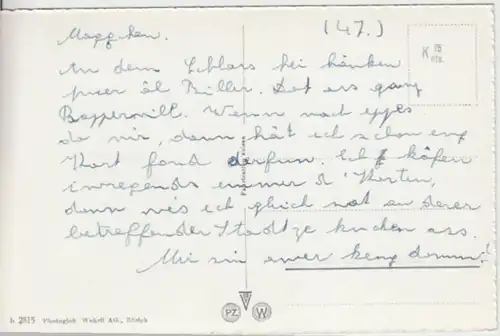 Mappchen.
(47.)
K 15 cts.
An dem Schlass hei hänken
puer äl Biller. Dat ass ganz
Bapperwill. Wann nach eppes
do wir, dann hät ich schon eng
Kart fond derfun. Ech käfen
iwregends ëmmer d'Karten,
dann wës ich glich wat an deser
betreffender Stadtze kucken ass.
Mir sin emer keng domm!
b 2815 Photoglob Wehrli AG., Zürich
PZ W